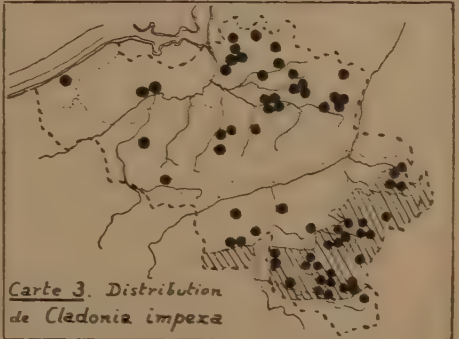 Carte 3. Distribution
de Cladonia impexa